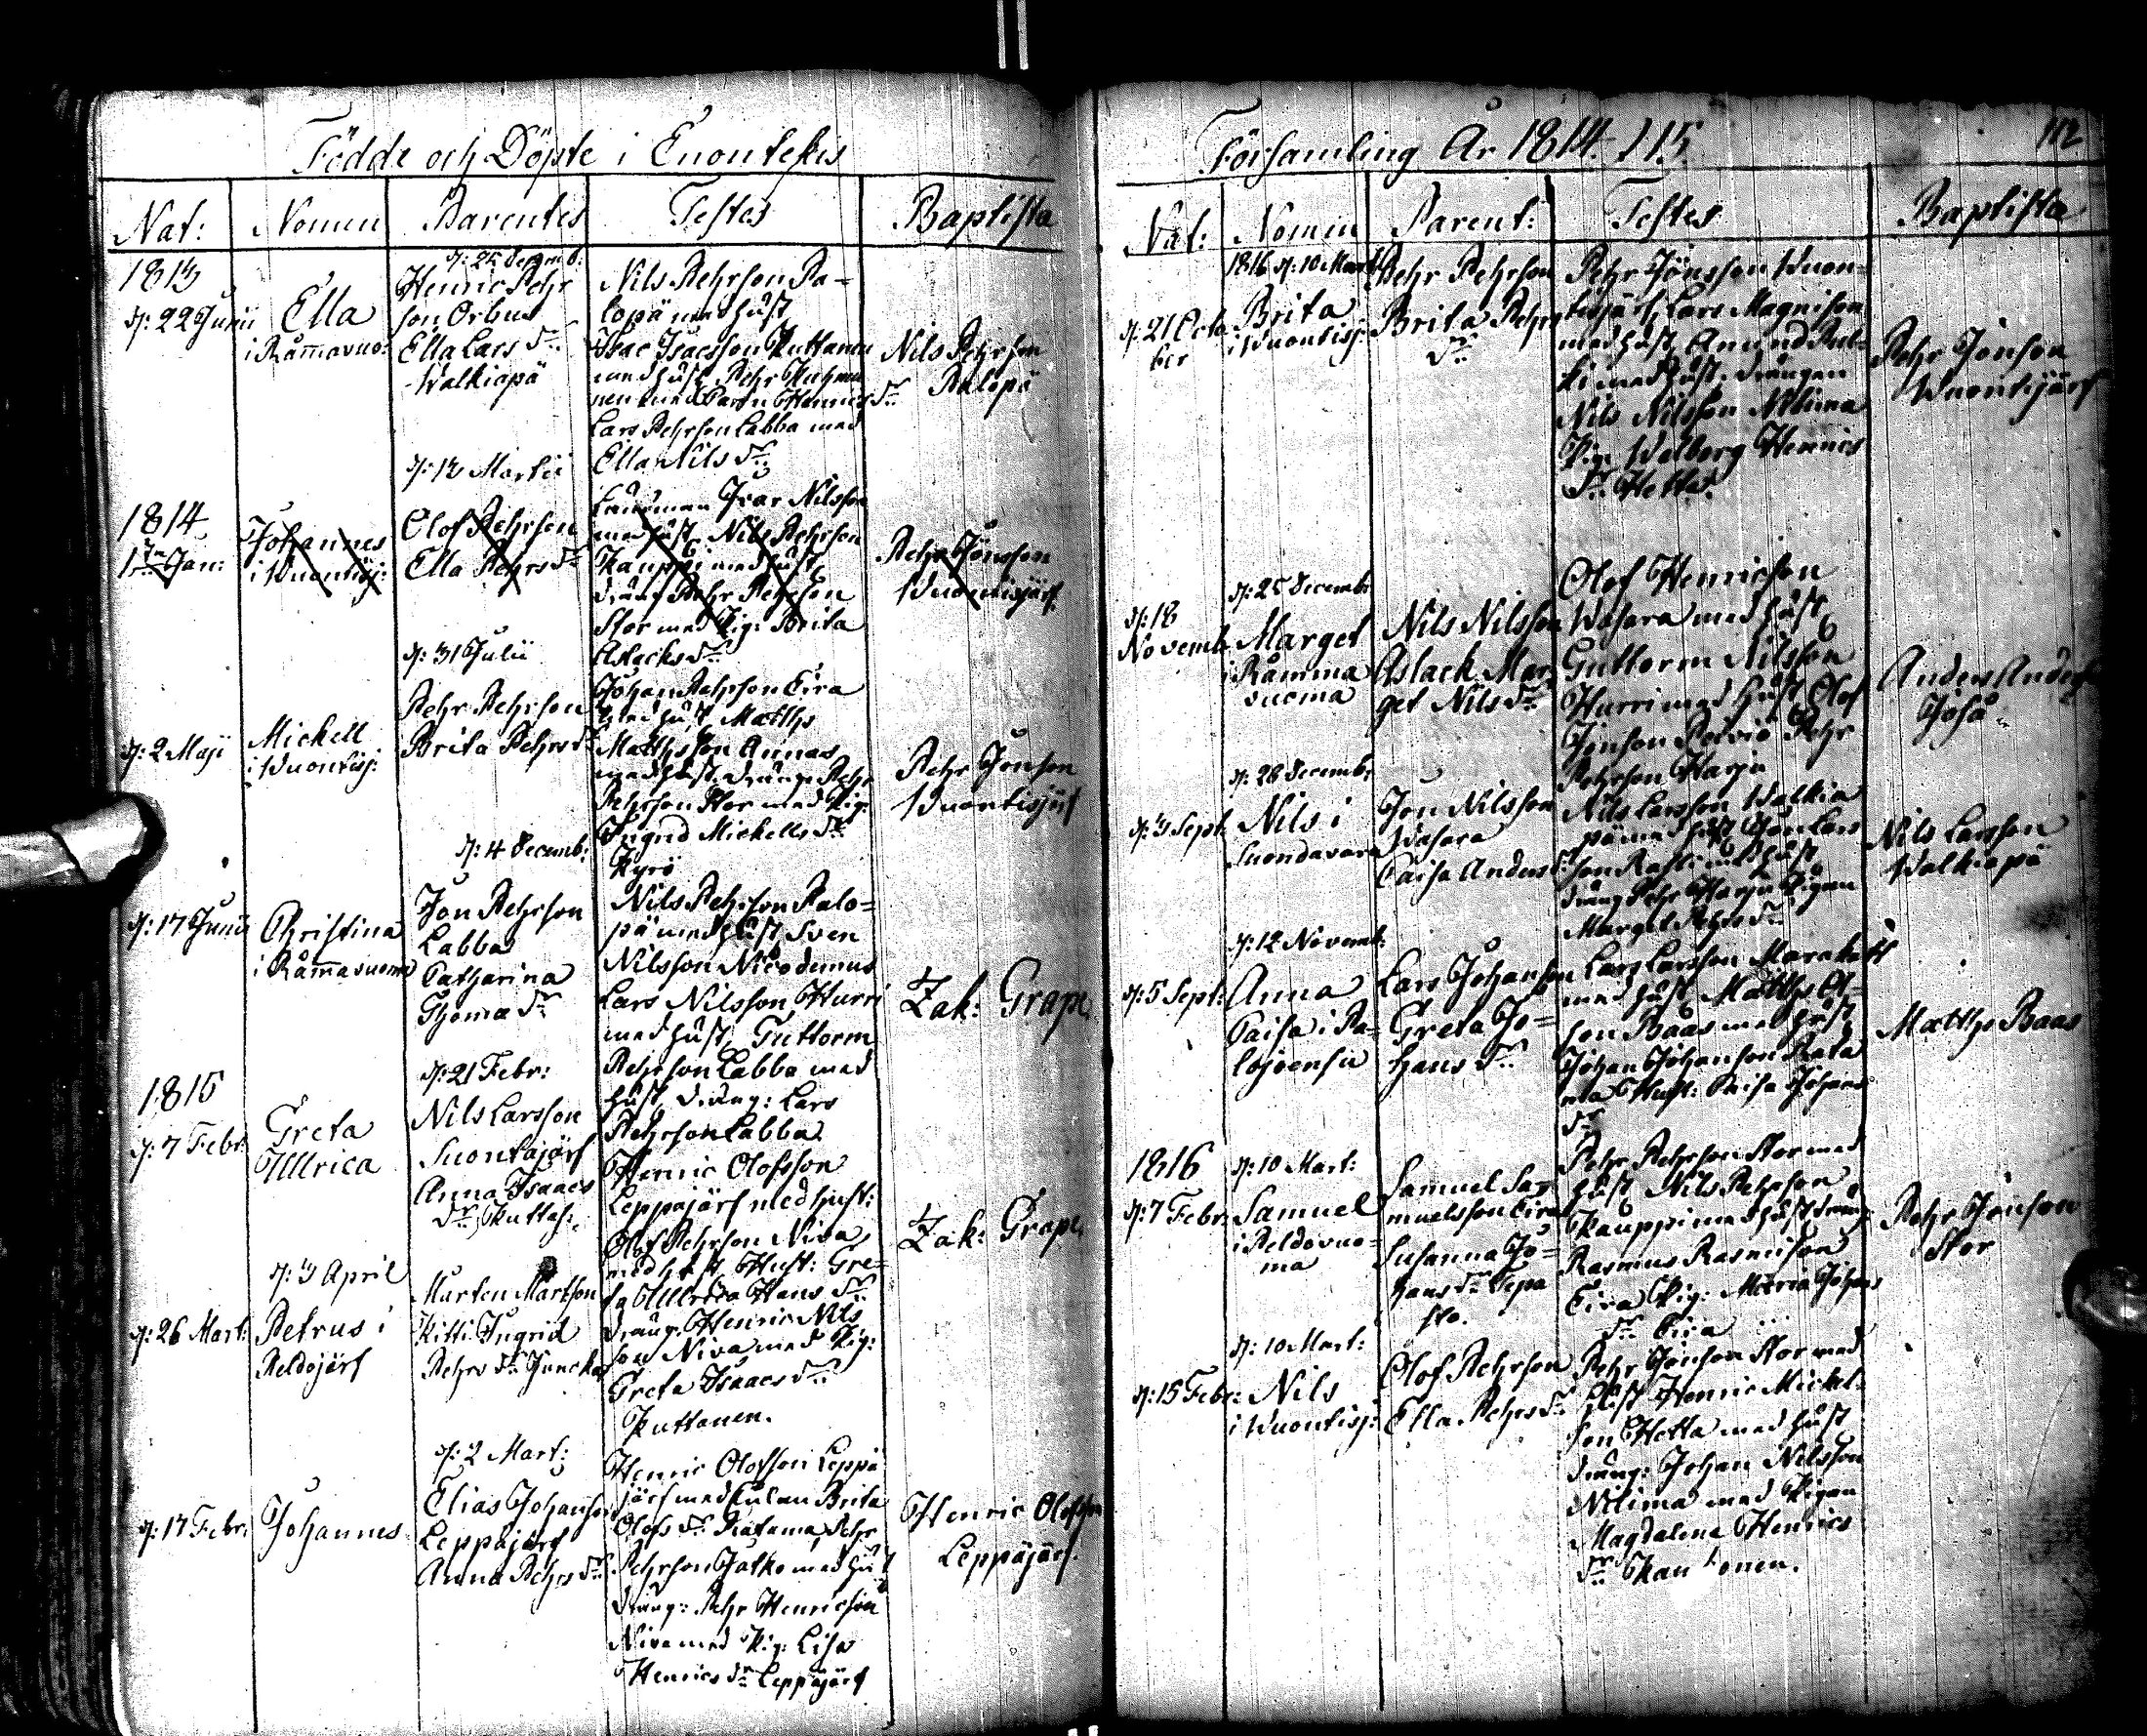 Födde och Döpte i Enontekis
Nat: Nomen Parentes Testes Baptista
1813
d: 22 Junii
Ella
i Råmavuo:
d: 25 Decemb:
Henric Pehr
son Orbus
Ella Lars Dr
Walkiapä
Nils Pehrson Pa-
lopä med hust
Isac Isacsson Kuttanen
med hust Pehr
nen med Henrics Dr
Lars Pehrson Labba med
Ella Nils Dr
Nils Pehrson
Palopä
1814
1 Jan:
Johannes
i Wuontisj:
d: 13 Martii
Olof Pehrson
Ella Pehrs Dr
Länsman Ivar Nilsson
med hust, Nils Pehrson
Kauppi med hust,
dräng Pehr Pehrson
Stor med Pig: Brita
Aslacks Dr
Pehr Jönsson
Wuontisjärf
d: 2 Maji
Mickell
i Wuontisj:
d: 31 Julii
Pehr Pehrson
Brita Pehrs Dr
Johan Pehrson Eira
med hust Matths
Matthsson Annas
med hust. dräng Pehr
Pehrson Stor med Pig:
Ingrid Mickells Dr
Kyrö
Pehr Jönson
Wuontisjärf
d: 17 Junii
Christina
i Råmavuoma
d: 4 Decemb:
Jon Pehrson
Labba
Catharina
Thoma Dr
Nils Pehrson Palo=
pä med hust Sven
Nilsson Nicodemus
Lars Nilsson Hurri
med hust, Guttorm
Pehrson Labba med
hust, dräng: Lars
Pehrson Labba
Zak: Grape
1815
d: 7 Febr:
Greta
Ullrica
d: 21 Febr:
Nils Larsson
Suontajärf
Anna Isaacs
Dr Kuttai:
Henric Olofsson
Leppäjärf med hust:
Olof Pehrson Niva
med hust, Hust: Gre=
ta Ullrica Hans Dr
dräng: Henric Nils
son Niva med Pig:
Greta Isaacs Dr
Kuttanen.
Zak: Grape
d: 26 Mart:
d: 3 April
Petrus i
Peldojärf
Mårten Mårtson
Kitti Ingrid
Pehrs Dr Juncka
d: 17 Febr:
Johannes
d: 2 Mart:
Elias Johanson
Leppäjärf
Anna Pehrs Dr
Henric Olofsson Leppä
järf med Brita
Olofs Dr Ratama, Pehr
Pehrson Jatko med hust
dräng: Pehr Henricson
Niva med Pig: Lisa
Henrics Dr Leppäjärf
Henric Olofson
Leppäjärf.
Församling År 1814. 115
112
Nat: Nomin Parent: Testes Baptista
d: 21 Octo
ber
1816 d: 10 Mart
Brita
i Wuontisj:
Pehr Pehrson
Brita Pehrs
Dr
Pehr Jönsson Wuon=
tisjärf, Lars Magnison
med hust, Anund Pal=
ki med hust. drängen
Nils Nilsson Nilima
Pig: Walborg Henrics
Dr Hetta.
Pehr Jönson
Wuontisjärf
d: 18
Novemb:
d: 25 Decemb:
Marget
i Råmma
vuoma
Nils Nilsson
Aslack Mar
get Nils Dr
Olof Henricson
Wasara med hust
Guttorm Nilsson
Hurri med hust Olof
Jönson Pehr
Pehrson Harju
Anders Anders
Joså
d: 3 Sept:
d: 28 Decemb:
Nils i
Suondavara
Jon Nilsson
Wasara
Caisa Anders D:
Nils Larsson Walkia
pä med hust, Jon Lars
son med hust
dräng Pehr Harju Pigan
Marget Pehrs Dr
Nils Larsson
Walkiapä
d: 5 Sept:
d: 12 Novemb:
Anna
Caisa i Pa-
lojoensu
Lars Johanson
Greta Jo=
hans Dr
Lars Larsson
med hust, Matths Ol=
son Baas med hust
Johan Johanson Rata
ma Hust: Caisa Johans
Dr
Matths Baas
1816
d: 7 Febr:
d: 10 Mart:
Samuel
i Peldovuo=
ma
Samuel Sa-
muelsson Eira
Susanna Jo=
hans Dr Sepa
Pehr Pehrson Stor med
hust Nils Pehrson
Kauppi med hust dräng
Rasmus Rasmuson
Eira Pig: Maria Johans
Dr Eira
Pehr Jönson
Stor
d: 15 Febr:
d: 10 Mart:
Nils
i Wuontisj:
Olof Pehrson
Ella Pehrs Dr
Pehr Jönson Stor med
hust Henric Mickel
son Hetta med hust
dräng: Johan Nilsson
Nilima med Pigan
Magdalena Henrics
Dr